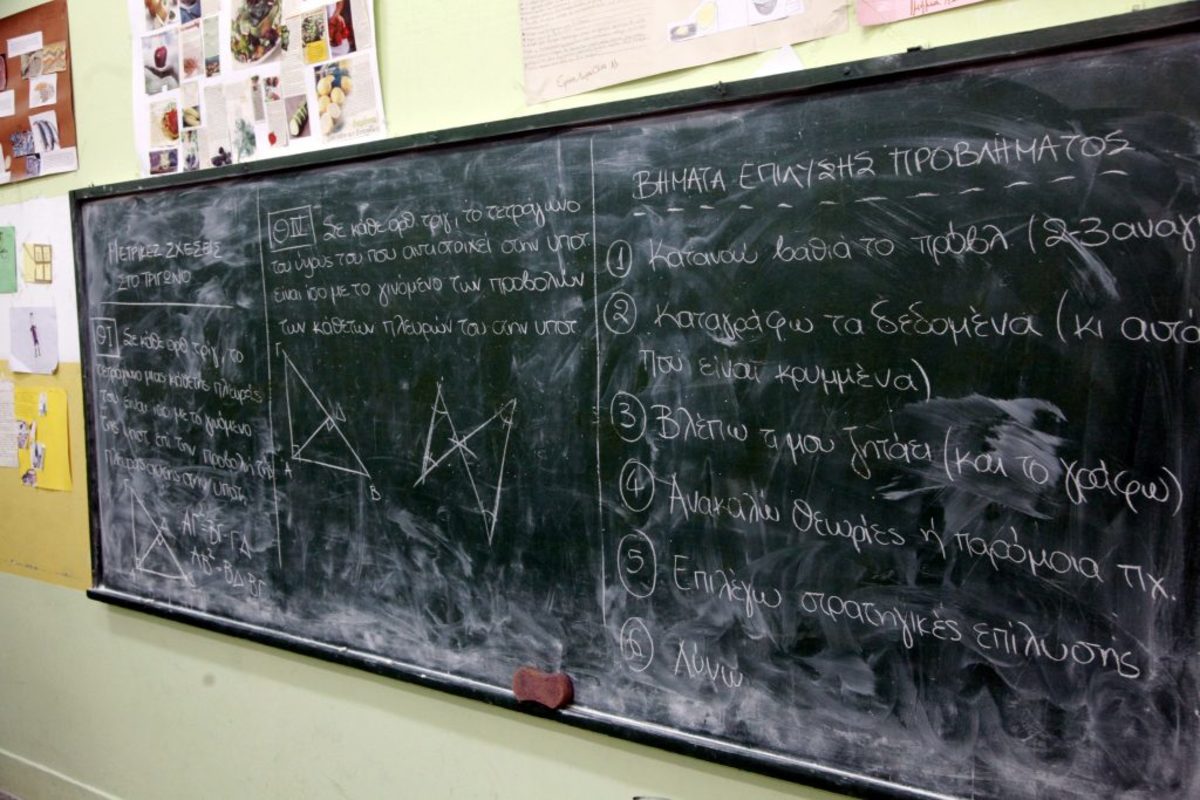 ΜΕΤΡΙΚΕΣ ΣΧΕΣΕΙΣ
ΣΤΟ ΤΡΙΓΩΝΟ
ΘΙ Σε κάθε ορθ τριγ, το
τετράγωνο μιας κάθετης πλευράς
του είναι ίσο με το γινόμενο
της υποτ. επί την προβολή της
πλευράς αυτής στην υποτ.
ΑΓ²=ΒΓ·ΓΔ
ΑΒ²=ΒΔ·ΒΓ
ΘΙΙ Σε κάθε ορθ. τριγ, το τετράγωνο
του ύψους του που αντιστοιχεί στην υποτ.
είναι ίσο με το γινόμενο των προβολών
των κάθετων πλευρών του στην υποτ.
Γ
Δ
Α
Β
ΒΗΜΑΤΑ ΕΠΙΛΥΣΗΣ ΠΡΟΒΛΗΜΑΤΟΣ
1 Κατανοώ βαθιά το πρόβλ (2-3 αναγ
2 Καταγράφω τα δεδομένα (κι αυτά
που είναι κρυμμένα)
3 Βλέπω τι μου ζητάει (και το γράφω)
4 Ανακαλώ θεωρίες ή παρόμοια πχ.
5 Επιλέγω στρατηγικές επίλυσής
6 Λύνω